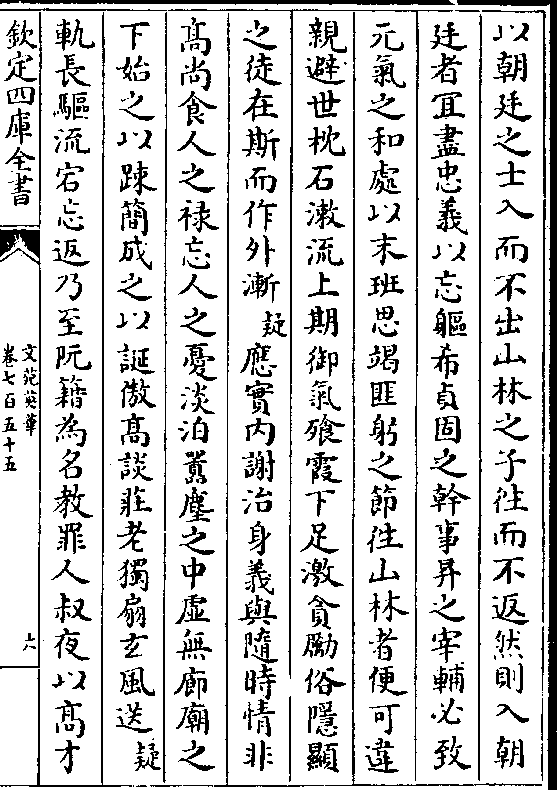 以朝廷之士入而不出山林之子往而不返然則入朝
廷者宜盡忠義以忘軀希貞固之幹事昇之宰輔必致
元氣之和處以末班思竭匪躬之節往山林者便可違
親避世枕石漱流上期御氣飱霞下足激貪勵俗隱顯
之徒在斯而作外漸疑應實内謝治身義與隨時情非
髙尚食人之禄忘人之憂淡泊囂塵之中虚無廊廟之
下始之以踈簡成之以誕傲髙談莊老獨扇玄風送疑
軌長驅流宕忘返乃至阮籍為名教罪人叔夜以髙才
欽定四庫全書
文苑英華
卷七百五十五
六